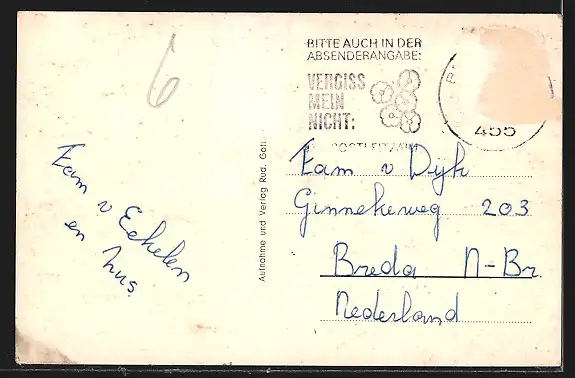 6
BITTE AUCH IN DER
ABSENDERANGABE:
VERGISS
MEIN
NICHT:
455
Fam v Eekelen
en hus.
Aufnahme und Verlag Rud.
Fam v Dijk
Ginnekeweg 203
Breda N-Br.
Nederland